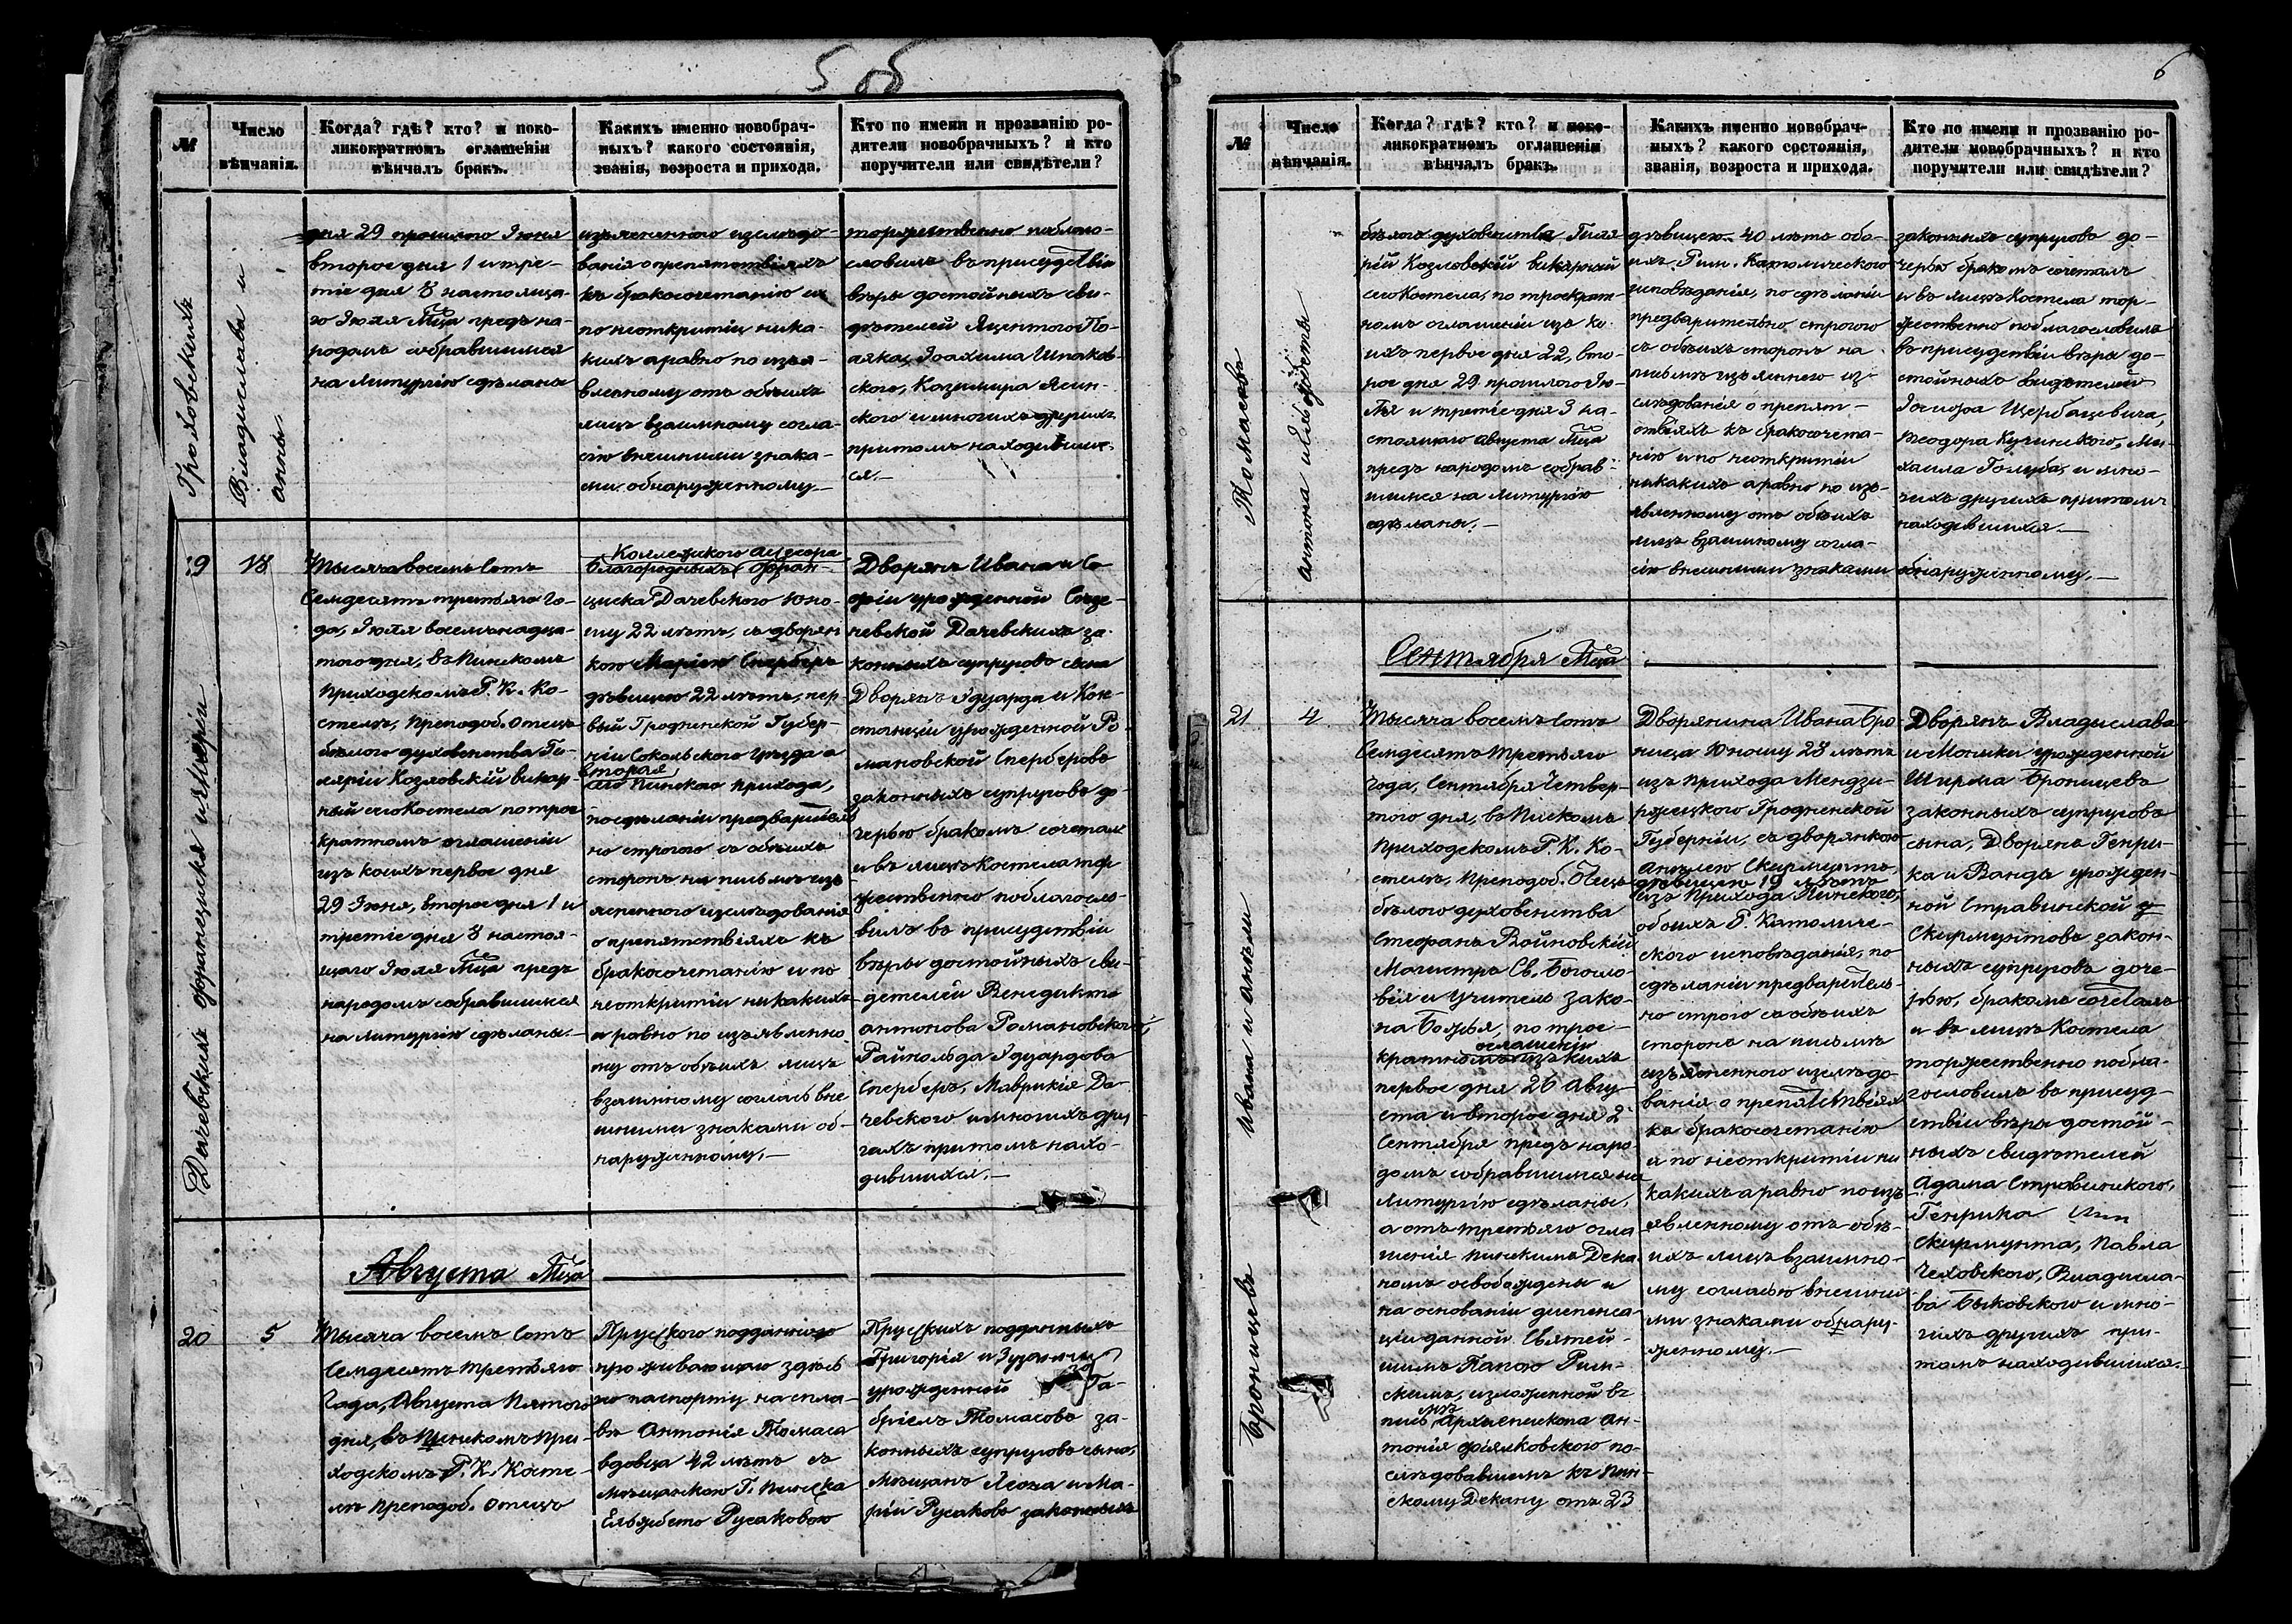 5 об
6
№
Число
вѣнчанія.
Когда? гдѣ? кто? и поко-
ликократномъ оглашеніи
вѣнчалъ бракъ.
Какихъ именно новобрач-
ныхъ? какого состоянія,
званія, возроста и прихода.
Кто по имени и прозванію ро-
дители новобрачныхъ? и кто
поручители или свидѣтели?
Гроховскихъ
Владислава и
анны
дня 29 прошлого Іюня
второе дня 1 и тре-
тіе дня 8 настояща-
го Іюля Мца предъ на-
родомъ собравшимся
на литургію сдѣланы
изъясненного изслѣдо-
ванія о препятствіяхъ
къ бракосочетанію и
по неоткрытіи ника-
кихъ а равно по изъя-
вленному отъ обѣихъ
лицъ взаимному согла-
сію внѣшними знака-
ми обнаруженному
торжественно поблаго-
словилъ въ присудствіи
вѣры достойныхъ сви-
дѣтелей Яцентого По-
аяка, Іоахима Шпаков-
ского, Казимира Ясин-
ского и многихъ другихъ
притомъ находивших-
ся.
19
18
Дачевскихъ Францишка и Маріи
Тысяча восемъ сотъ
Семдесятъ третьяго го-
да, Іюля восемънадца-
того дня, въ Пинскомъ
Приходскомъ Р. К. Ко-
стелѣ, Преподоб. Отецъ
бѣлого духовенства Ги-
лярій Козловскій викар-
ный сего Костела по трое
кратномъ оглашеніи
изъ коихъ первое дня
29 Іюня, второе дня 1 и
третіе дня 8 настоя-
щаго Іюля Мца предъ
народомъ собравшимся
на литургію сдѣланы.
Коллежского Ассесора
Благородныхъ Фран-
циска Дачевского юно-
шу 22 лѣтъ, съ дворян
кою Маріею Сперберъ
дѣвицею 22 лѣтъ, пер-
вый Гродненской Губер-
ніи Сокольского уѣзда а
вторая
сего Пинского прихода,
по сдѣланіи предварительо
но строгого съ обѣихъ
сторонъ на письмѣ изъ
ясненного изслѣдованія
о препятствіяхъ къ
бракосочетанію и по
неоткрытіи никакихъ
а равно по изъявленно
му отъ обѣихъ лицъ
взаимному согласію внѣ
шними знаками об-
наруженному.
Дворянъ Ивана и Со
фіи урожденной Соце-
невской Дачевскихъ за-
конныхъ супруговъ сына
Дворянъ Эдуарда и Кон-
станціи урожденной Ро-
мановской Сперберовъ
законныхъ супруговъ до-
черью бракомъ сочеталъ
и въ лицѣ костела тор
жественно поблагосло-
вилъ въ присудствіи
вѣры достойныхъ сви-
детелей Венедикта
антонова Романовского,
Райнольда Эдуардова
Сперберъ, Маврикія Да-
чевского и многихъ дру
гихъ притомъ нахо-
дившихся.
Августа Мца
20
5
Тысяча восемъ сотъ
Семдесятъ третьяго
Года, Августа Пятого
дня, въ Пинскомъ При-
ходскомъ Р. К. Косте-
лѣ Преподоб. Отецъ
Прусского подданного
проживающаго здѣсь
по паспорту на спла-
вѣ Антонія Томаса
вдовца 42 лѣтъ съ
мѣщанкою Г. Пинска
Ельжбетою Русаковою
Прусскихъ подданныхъ
Григорія и Зузанны
урожденной Га-
бріель Томасовъ за-
конныхъ супруговъ сына,
мѣщанъ Якова и Ма-
ріи Русаковъ законныхъ
№
Число
вѣнчанія.
Когда? гдѣ? кто? и поко-
ликократномъ оглашеніи
вѣнчалъ бракъ.
Какихъ именно новобрач-
ныхъ? какого состоянія,
званія, возроста и прихода.
Кто по имени и прозванію ро-
дители новобрачныхъ? и кто
поручители или свидѣтели?
Томасовъ
антона и Ельжбеты
бѣлого духовенства Гиля
рій Козловскій викарный
сего Костела, по троекрат-
номъ оглашеніи изъ ко-
ихъ первое дня 22, вто-
рое дня 29 прошлого Ію-
ля и третіе дня 3 на-
стоящаго августа Мца
предъ народомъ собрав-
шимся на литургію
сдѣланы.
дѣвицею 40 лѣтъ обо-
ихъ Рим. Католического
исповѣданія, по сдѣланіи
предварительно строгого
съ обѣихъ сторонъ на
письмѣ изъясненного из-
слѣдованія о препят-
ствіяхъ къ бракосочета-
нію и по неоткрытіи
никакихъ а равно по изъ-
явленному отъ обѣихъ
лицъ взаимному согла-
сію внѣшними знаками
законныхъ супруговъ до-
черью бракомъ сочеталъ
и въ лицѣ костела тор-
жественно поблагословилъ
въ присудствіи вѣры до-
стойныхъ свидѣтелей
Іосифа Щербацевича,
Теодора Кучинского, Ми-
хаила Голуба, и мно-
гихъ другихъ притомъ
находившихся.
обнаруженному.
Сентября Мца
21
4
Бронищевъ Ивана и анѣли
Тысяча восемъ сотъ
Семдесятъ Третьяго
года, Сентября Четвер-
того дня, въ Пинскомъ
Приходскомъ Р. К. Ко-
стелѣ, Преподоб. Отецъ
бѣлого духовенства
Стефанъ Войновскій
Магистръ Св. Богосло-
вія и учитель зако-
на Божья, по трое-
оглашеніи
кратномъ изъ коихъ
первое дня 26 Авгу-
ста и второе дня 2
Сентября предъ наро
домъ собравшимся на
литургію сдѣланы,
а отъ третьяго огла
шенія Пинскимъ Дека
номъ освобождены и
на основаніи диспенса-
ціи данной Святей-
шимъ Папою Рим-
скимъ, изложенной въ
мѣ
пись Архіепископа Ан-
тонія Фіялковского по-
слѣдовавшемъ къ Пин-
скому Декану отъ 23
Дворянина Ивана Бро
нища юношу 28 лѣтъ
изъ прихода Мендзи-
ржецкого Гродненской
Губерніи, съ дворянкою
Анѣлею Скирмунтъ,
дѣвицею 19 лѣтъ
изъ Прихода Пинского,
обоихъ Р. Католиче-
ского исповѣданія, по
сдѣланіи предваритель-
но строго съ обѣихъ
сторонъ на письмѣ
изъясненного изслѣдо-
ванія о препятствіях
къ бракосочетанію
и по неоткрытіи ни
какихъ а равно по изъ
явленному отъ обѣ-
ихъ лицъ взаимно-
му согласію внѣшни
ми знаками обнару-
женному.
Дворянъ Владислава
и Моники урожденной
Ширма Бронищевъ
законныхъ супруговъ
сына, Дворянъ Генри-
ка и Ванды урожден-
ной Стравинской
Скирмунтовъ закон-
ныхъ супруговъ доче-
рью, бракомъ сочеталъ
и въ лицѣ Костела
торжественно побла-
гословилъ въ присуд-
ствіи вѣры достой-
ныхъ свидѣтелей
Адама Стравинского,
Генрика
Скирмунта, Павла
Чеховского, Владисла-
ва Быковского и мно-
гихъ другихъ при-
томъ находившихся.